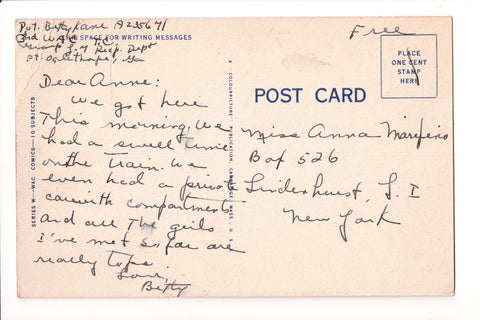 Pvt. Betty Lane A235671
3rd W.A.C. T.C.
THIS SPACE FOR WRITING MESSAGES
Co. 7 Recp. Dept
Ft. Oglethorpe, Ga
Dear Anne:
We got here
This morning. We
had a swell time
on the train. We
even had a private
car with compartments
and all The girls
I've met so far are
really tops.
Love,
Betty
SERIES W—WAC COMICS—10 SUBJECTS
A COLOURPICTURE PUBLICATION CAMBRIDGE, MASS. U. S. A.
Free
PLACE
ONE CENT
STAMP
HERE
POST CARD
Miss Anna
Box 526
Lindenhurst, L. I
New York